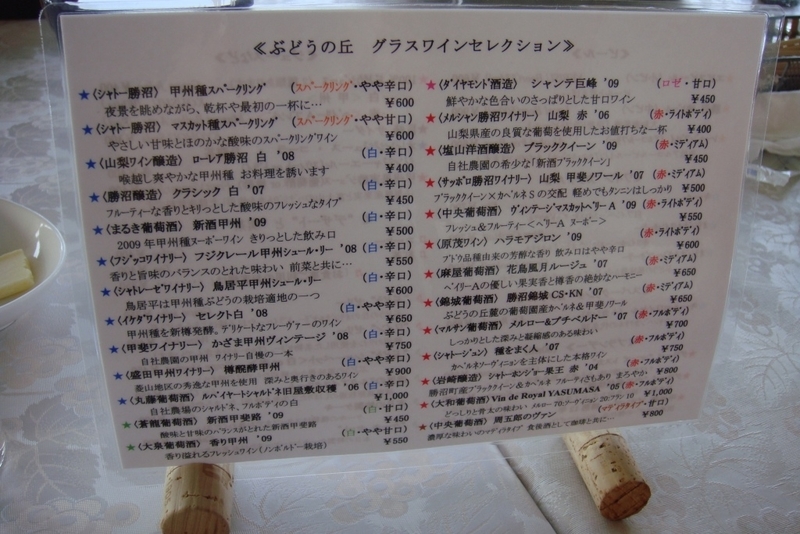 ≪ぶどうの丘 グラスワインセレクション≫
★〈シャトー勝沼〉 甲州種スパークリング (スパークリング・やや辛口)
夜景を眺めながら、乾杯や最初の一杯に… ¥600
★〈シャトー勝沼〉 マスカット種スパークリング (スパークリング・やや甘口)
やさしい甘味とほのかな酸味のスパークリングワイン ¥600
★〈山梨ワイン醸造〉 ローレア勝沼 白 '08 (白・辛口)
喉越し爽やかな甲州種 お料理を誘います ¥400
★〈勝沼醸造〉 クラシック 白 '07 (白・辛口)
フルーティーな香りとキリっとした酸味のフレッシュなタイプ ¥450
★〈まるき葡萄酒〉 新酒甲州 '09 (白・辛口)
2009年甲州種ヌーボーワイン きりっとした飲み口 ¥500
★〈フジッコワイナリー〉 フジクレール甲州シュール・リー '08 (白・辛口)
香りと旨味のバランスのとれた味わい 前菜と共に… ¥550
★〈シャトレーゼワイナリー〉 鳥居平甲州シュール・リー (白・辛口)
鳥居平は甲州種ぶどうの栽培適地の一つ ¥650
★〈イケダワイナリー〉 セレクト白 '08 (白・やや辛口)
甲州種を新樽発酵。デリケートなフレーヴァーのワイン ¥650
★〈甲斐ワイナリー〉 かざま甲州ヴィンテージ '08 (白・辛口)
自社農園の甲州 ワイナリー自慢の一本 ¥750
★〈盛田甲州ワイナリー〉 樽醗酵甲州 (白・やや辛口)
菱山地区の秀逸な甲州を使用 深みと奥行きのあるワイン ¥900
★〈丸藤葡萄酒〉 ルバイヤートシャルドネ旧屋敷収穫 '06 (白・辛口)
自社農場のシャルドネ、フルボディの白 ¥1,000
★〈蒼龍葡萄酒〉 新酒甲斐路 '09 (白・甘口)
酸味と甘味のバランスがとれた新酒甲斐路 ¥450
★〈大泉葡萄酒〉 香り甲州 '09 (白・やや甘口)
香り溢れるフレッシュワイン(ノンボルドー栽培) ¥550
★〈ダイヤモンド酒造〉 シャンテ巨峰 '09 (ロゼ・甘口)
鮮やかな色合いのさっぱりとした甘口ワイン ¥450
★〈メルシャン勝沼ワイナリー〉 山梨 赤 '06 (赤・ライトボディ)
山梨県産の良質な葡萄を使用したお値打ちな一杯 ¥400
★〈塩山洋酒醸造〉 ブラッククイーン '09 (赤・ミディアム)
自社農園の希少な「新酒ブラッククイーン」 ¥450
★〈サッポロ勝沼ワイナリー〉 山梨 甲斐ノワール '07 (赤・ミディアム)
ブラッククイーン×カベルネSの交配 軽めでもタンニンはしっかり ¥500
★〈中央葡萄酒〉 ヴィンテージマスカットベリーA '09 (赤・ライトボディ)
フレッシュ&フルーティー<ベリーA ヌーボー> ¥550
★〈原茂ワイン〉 ハラモアジロン '09 (赤・ライトボディ)
ブドウ品種由来の芳醇な香り 飲み口はやや辛口 ¥600
★〈麻屋葡萄酒〉 花鳥風月ルージュ '07 (赤・ミディアム)
ベイリーAの優しい果実香と樽香の絶妙なハーモニー ¥650
★〈錦城葡萄酒〉 勝沼錦城 CS・KN '07 (赤・ミディアム)
ぶどうの丘麓の葡萄園産カベルネ&甲斐ノワール ¥650
★〈マルサン葡萄酒〉 メルロー&プチベルドー '07 (赤・フルボディ)
しっかりとした深みと凝縮感のある味わい ¥700
★〈シャトージュン〉 種をまく人 '07 (赤・フルボディ)
カベルネソーヴィニョンを主体にした本格ワイン ¥750
★〈岩崎醸造〉 シャトーホンジョー果王 赤 '04 (赤・フルボディ)
勝沼町産ブラッククイーン&カベルネ フルーティさもあり まろやか ¥800
★〈大和葡萄酒〉 Vin de Royal YASUMASA '05 (赤・フルボディ)
どっしりと骨太の味わい メルロー70:ソーヴィニョン20:フラン10 ¥1,000
★〈中央葡萄酒〉 周五郎のヴァン (マデイラタイプ・甘口)
濃厚な味わいのマデイラタイプ 食後酒として珈琲と共に… ¥800